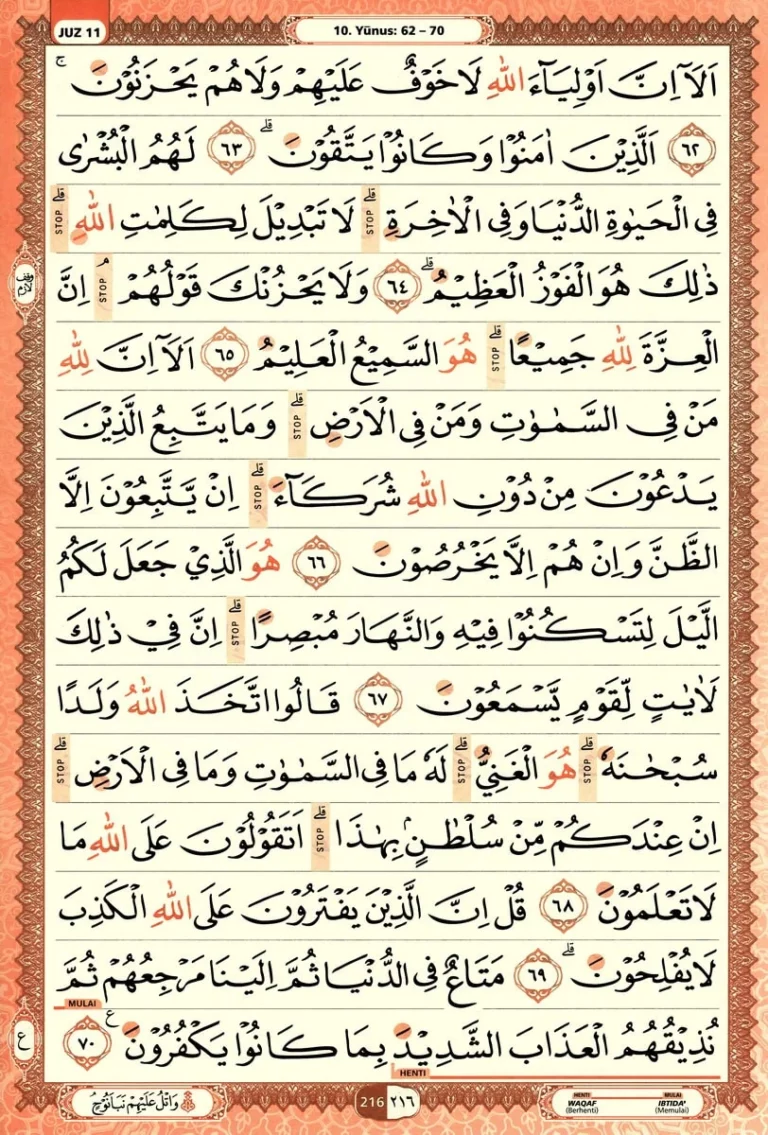 JUZ 11
10. Yūnus: 62 – 70
اَلَآ اِنَّ اَوْلِيَاۤءَ اللّٰهِ لَا خَوْفٌ عَلَيْهِمْ وَلَا هُمْ يَحْزَنُوْنَ ۚ
٦٢ اَلَّذِيْنَ اٰمَنُوْا وَكَانُوْا يَتَّقُوْنَ ۗ ٦٣ لَهُمُ الْبُشْرٰى
فِى الْحَيٰوةِ الدُّنْيَا وَفِى الْاٰخِرَةِ ۗ STOP لَا تَبْدِيْلَ لِكَلِمٰتِ اللّٰهِ ۗ STOP
ذٰلِكَ هُوَ الْفَوْزُ الْعَظِيْمُ ۗ ٦٤ وَلَا يَحْزُنْكَ قَوْلُهُمْ ۘ STOP اِنَّ
وقف لازم
الْعِزَّةَ لِلّٰهِ جَمِيْعًا ۗ STOP هُوَ السَّمِيْعُ الْعَلِيْمُ ٦٥ اَلَآ اِنَّ لِلّٰهِ
مَنْ فِى السَّمٰوٰتِ وَمَنْ فِى الْاَرْضِ ۗ STOP وَمَا يَتَّبِعُ الَّذِيْنَ
يَدْعُوْنَ مِنْ دُوْنِ اللّٰهِ شُرَكَاۤءَ ۗ STOP اِنْ يَّتَّبِعُوْنَ اِلَّا
الظَّنَّ وَاِنْ هُمْ اِلَّا يَخْرُصُوْنَ ٦٦ هُوَ الَّذِيْ جَعَلَ لَكُمُ
الَّيْلَ لِتَسْكُنُوْا فِيْهِ وَالنَّهَارَ مُبْصِرًا ۗ STOP اِنَّ فِيْ ذٰلِكَ
لَاٰيٰتٍ لِّقَوْمٍ يَّسْمَعُوْنَ ٦٧ قَالُوا اتَّخَذَ اللّٰهُ وَلَدًا
سُبْحٰنَهٗ ۗ STOP هُوَ الْغَنِيُّ ۗ STOP لَهٗ مَا فِى السَّمٰوٰتِ وَمَا فِى الْاَرْضِ ۗ STOP
اِنْ عِنْدَكُمْ مِّنْ سُلْطٰنٍۢ بِهٰذَا ۗ STOP اَتَقُوْلُوْنَ عَلَى اللّٰهِ مَا
لَا تَعْلَمُوْنَ ٦٨ قُلْ اِنَّ الَّذِيْنَ يَفْتَرُوْنَ عَلَى اللّٰهِ الْكَذِبَ
لَا يُفْلِحُوْنَ ۗ ٦٩ مَتَاعٌ فِى الدُّنْيَا ثُمَّ اِلَيْنَا مَرْجِعُهُمْ ثُمَّ
MULAI
نُذِيْقُهُمُ الْعَذَابَ الشَّدِيْدَ بِمَا كَانُوْا يَكْفُرُوْنَ ع ٧٠
ع
HENTI
وَاتْلُ عَلَيْهِمْ نَبَاَ نُوْحٍ
216 ٢١٦
HENTI MULAI
WAQAF IBTIDA'
(Berhenti) (Memulai)